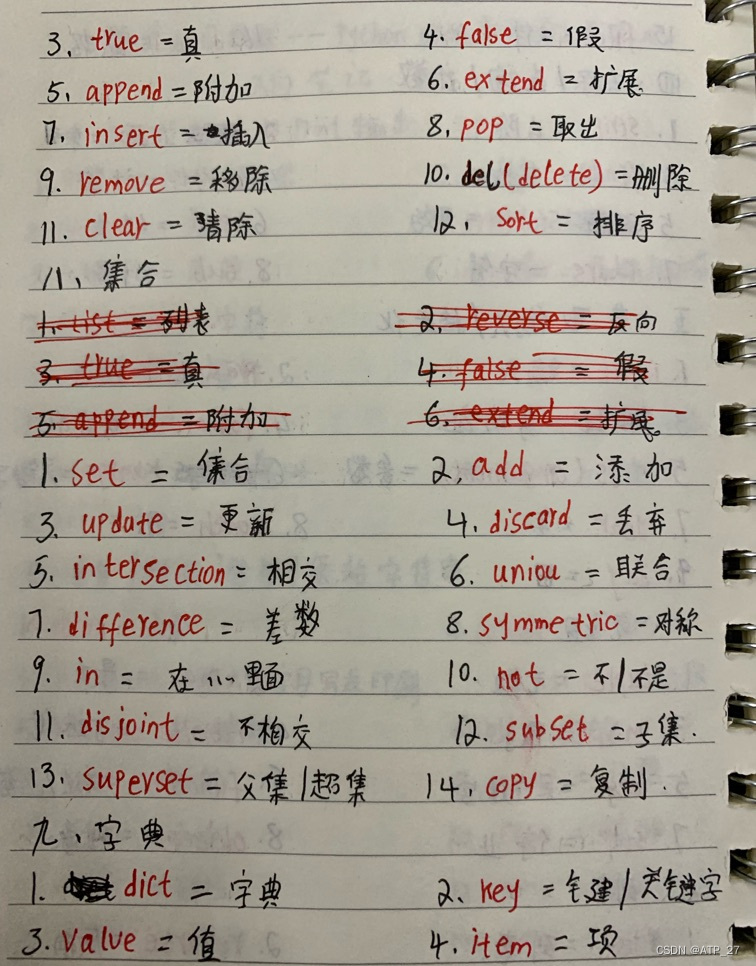 3. true = 真 4. false = 假
5. append = 附加 6. extend = 扩展
7. insert = 插入 8. pop = 取出
9. remove = 移除 10. del(delete) = 删除
11. clear = 清除 12. sort = 排序
八、集合
1. List = 列表 2. reverse = 反向
3. true = 真 4. false = 假
5. append = 附加 6. extend = 扩展。
1. set = 集合 2, add = 添加
3. update = 更新 4. discard = 丢弃
5. intersection = 相交 6. uniou = 联合
7. difference = 差数 8. symmetric = 对称
9. in = 在……里面 10. not = 不/不是
11. disjoint = 不相交 12. subset = 子集.
13. superset = 父集/超集 14. copy = 复制.
九、字典
1. dict = 字典 2. key = 键/关键字
3. value = 值 4. item = 项
CSDN @ATP_27